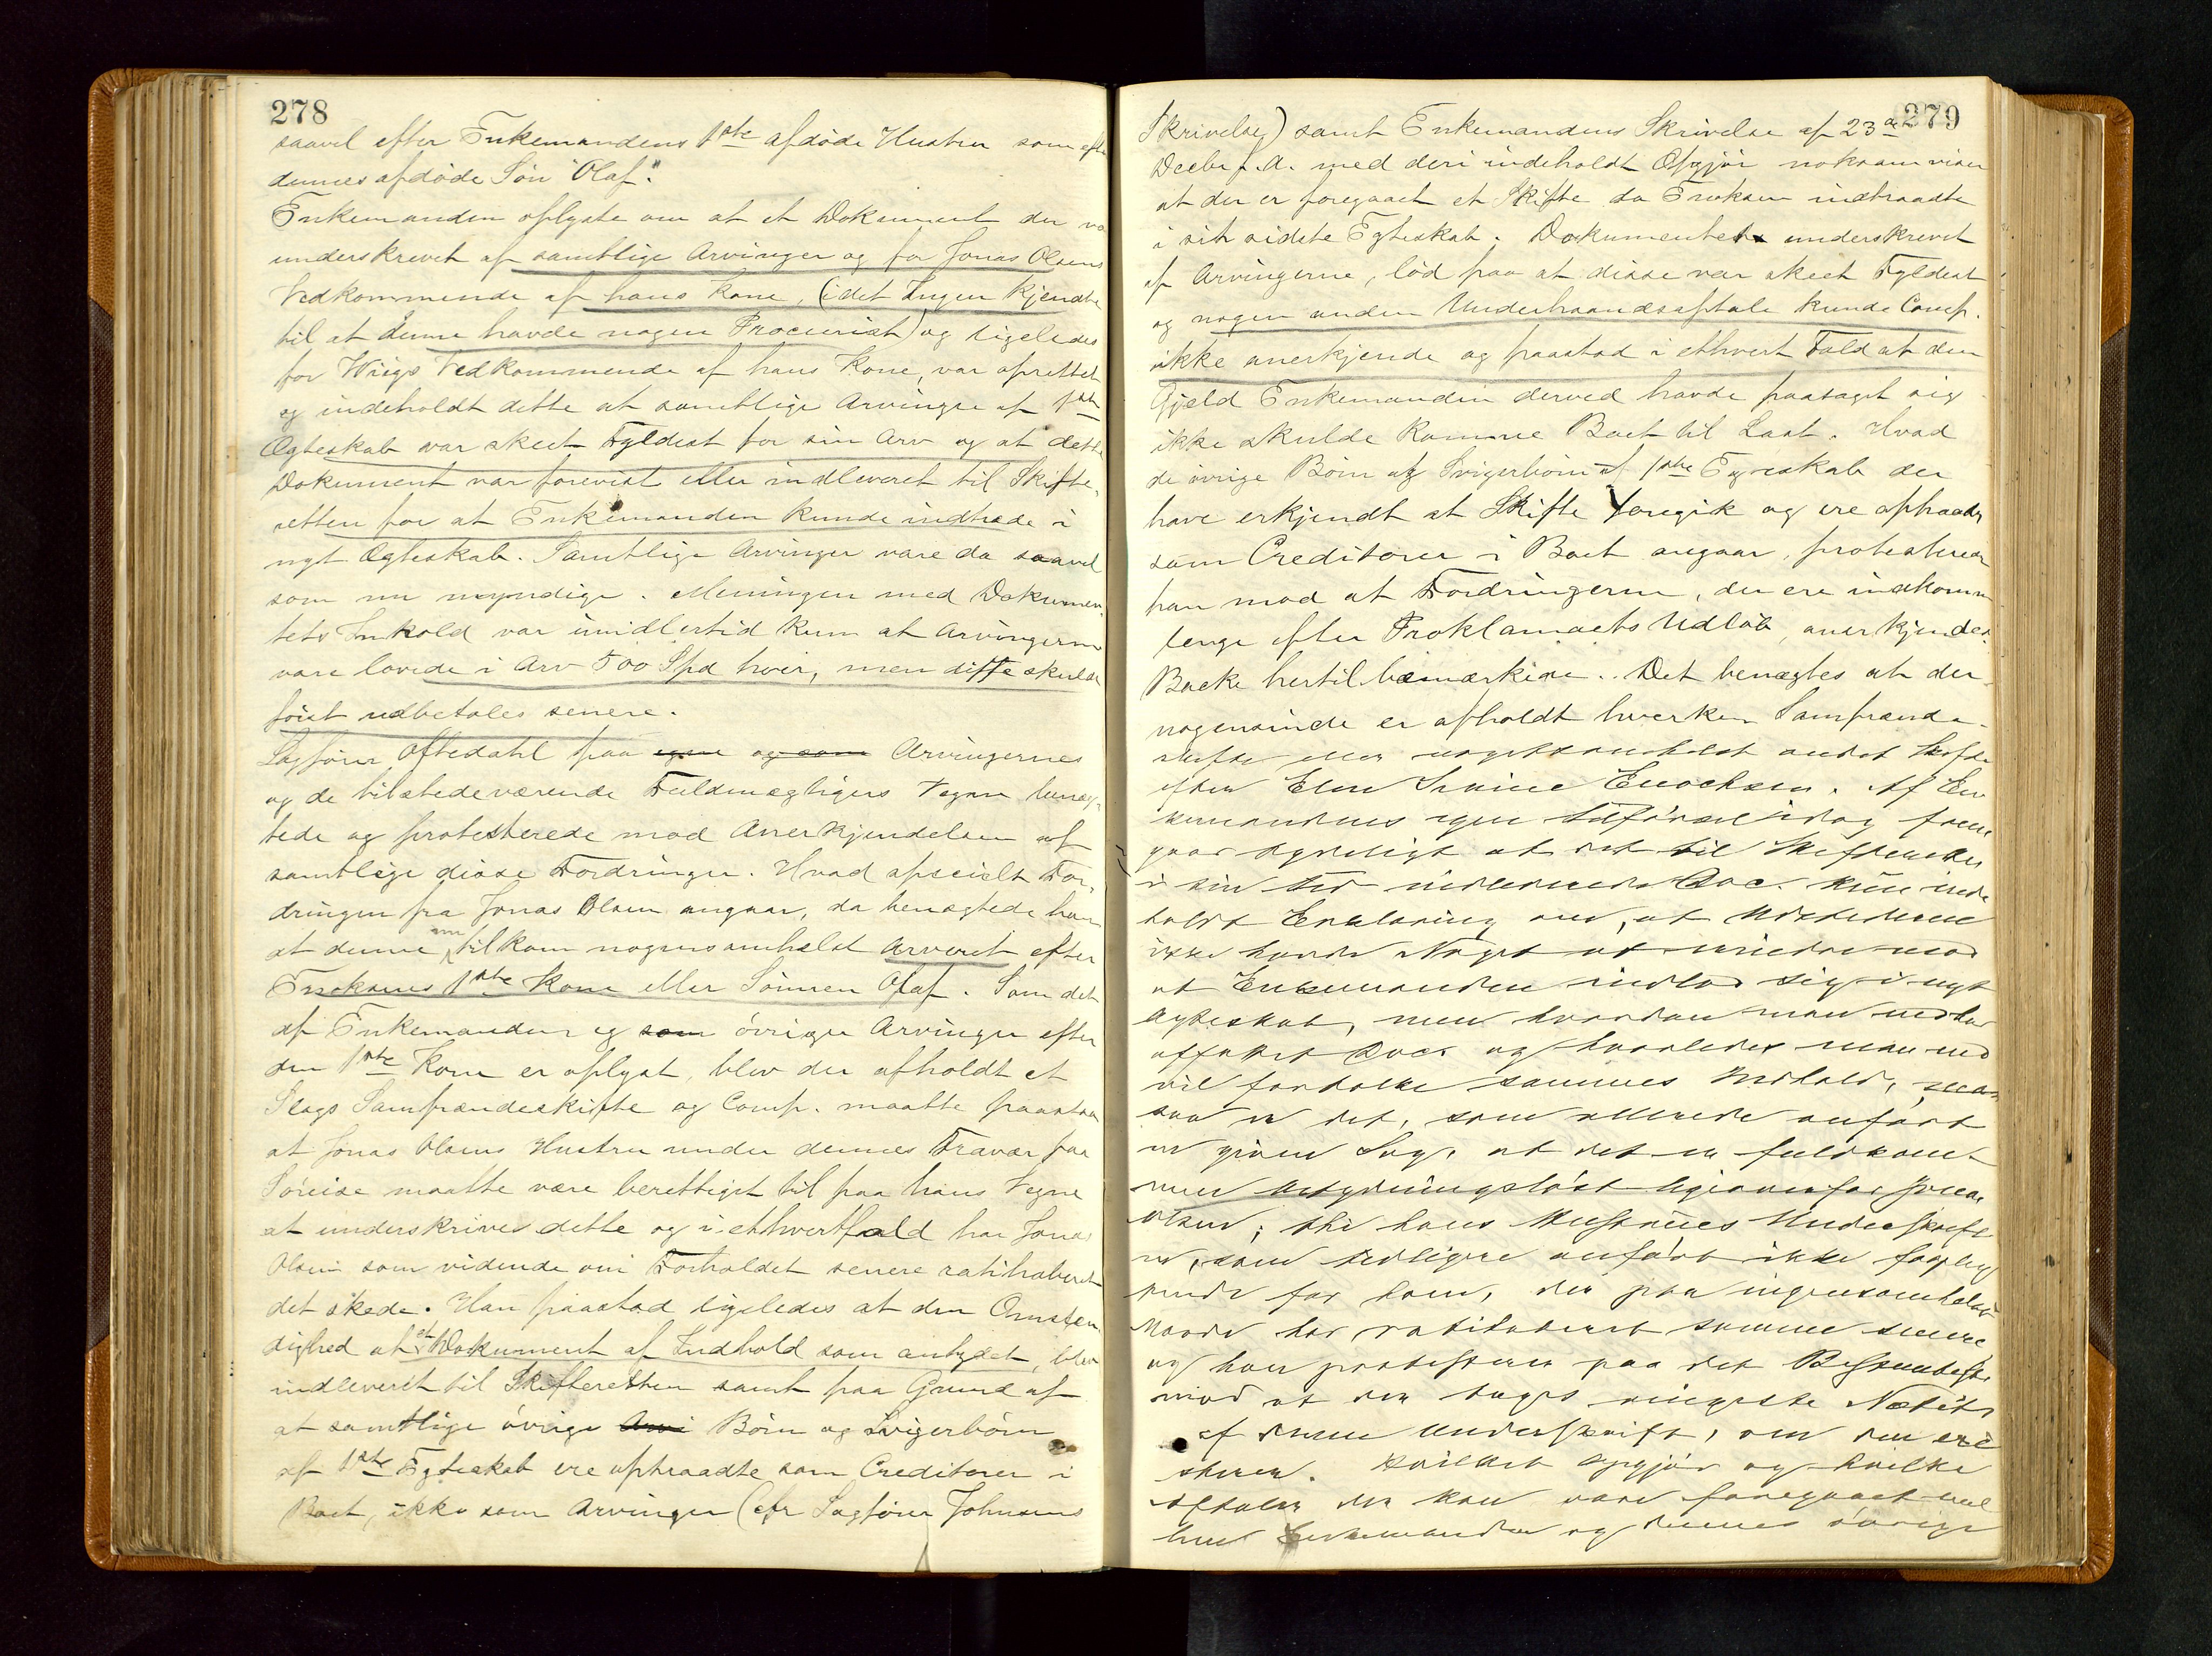 278
saavel efter Enkemandens 1ste afdøde Hustru som efter
dennes afdøde Søn "Olaf".
Enkemanden oplyste om at et Dokument der va
underskrevet af samtlige Arvinger og for Jonas Olsens
Vedkommende af hans Kone, (idet Ingen kjendte
til at denne havde nogen Procurist) og ligeledes
for Wiigs Vedkommende af hans Kone, var oprettet
og indeholdt dette at samtlige Arvinger af 1ste
Ægteskab var skeet Fyldest for sin Arv og at dette
Dokument var forevist eller indleveret til Skifte-
retten for at Enkemanden kunde indtræde i
nyt Ægteskab. Samtlige Arvinger vare da saavel
som nu myndige. Meningen med Dokumen
tets Inhold var imidlertid kun at Arvingerne
vare lovede i Arv 500 Spd hver, men disse skulde
først udbetales senere.
Sagfører Oftedahl paa egne og som Arvingernes
og de tilstedeværende Fuldmægtigers Vegne benæg-
tede og protesterede mod Anerkjendelsen af
samtlige disse Fordringer. Hvad specielt For-
dringen fra Jonas Olsen angaar, da benægtede han
at denne tilkom nogensomhelst Arveret efter
Enoksens 1ste Kone eller Sønnen Olaf. Som det
af Enkemanden og som øvrige Arvinger efter
den 1ste Kone er oplyst, blev der afholdt et
Slags Samfrændeskifte og Comp. maatte paastaa
at Jonas Olsens Hustru under dennes Fravær paa
Søreise maatte være berettiget til paa hans Vegne
at underskrive dette og i ethvertfald har Jonas
Olsen som vidende om Forholdet senere ratihaberet
det skede. Han paastod ligeledes at den Omstæn-
dighed at et Dokument af Indhold som antydet, blev
indleveret til Skifteretten samt paa Grund af
at samtlige øvrige Arvi Børn og Svigerbørn
af 1ste Egteskab ere optraadte som Creditorer i
Boet, ikke som Arvinger (cfr Sagfører Johnsens
279
Skrivelse) samt Enkemandens Skrivelse af 23de
Decbr f.A. med deri indeholdt Opgjør noksom viser
at der er foregaaet et Skifte da Enoksen indtraadte
i sit sidste Egteskab. Dokumentet underskrevet
af Arvingerne, lød paa at disse var skeet Fyldest
og nogen anden Underhaandsaftale kunde Comp.
ikke anerkjende og paastod i ethvert Fald at den
Gjeld Enkemanden derved havde paataget sig
ikke skulde komme Boet til Last. Hvad
de øvrige Børn og Svigerbørn af 1ste Egteskab der
have erkjendt at Skifte foregik og ere optraadte
som Creditorer i Boet angaar, protesterer
han mod at Fordringerne, der ere indkomne
lenge efter Proklamaets Udløb, anerkjendes.
Backe hertil bemærkede.. Det benægtes at der
nogensinde er afholdt hverken Samfrænde-
skifte eller nogetsomhelst andet Skifte
efter Elen Serine Enochsen. Af En
kemandens egen Tilførsel idag frem
gaar tydeligt at det til Skifteretten
i sin Tid indleverede Doc. kun inde
holdt Erklæring om, at Udstederne
ikke havde Noget at erindre mod
at Enkemanden indlod sig i nyt
Ægteskab, men hvordan man end har
affattet Doc. og hvorledes man end
vil fortolke sammes Indhold,
saa er det, som allerede anført
en given Sag, at det er fuldkom-
men betydningsløst ligeoverfor Jonas
Olsen; thi hans Hustrues Underskrift
er, som tidligere anført ikke forplig
tende for ham, der paa ingensomhelst
Maade har ratihaberet samme senere,
og han protesterer paa det Bestemteste
mod at der tages ringeste Notits
af denne Underskrift, om den exi
sterer. Hvilket Opgjør og hvilke
Aftaler der kan være foregaaet mel
lem Enkemanden og dennes øvrige